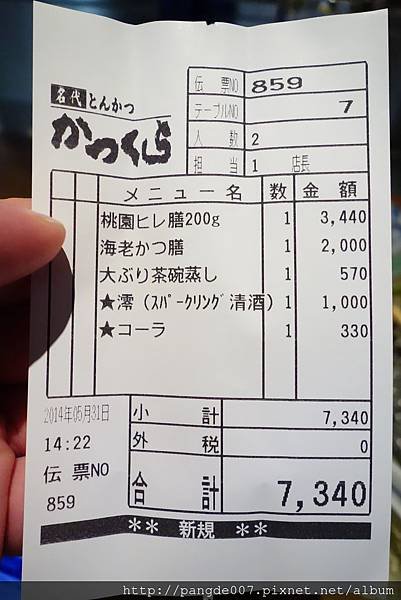 名代 とんかつ
かつくら
伝 票NO 859
テーブルNO 7
人 数 2
担 当 1 店長
メニュー名 数 金 額
桃園ヒレ膳200g 1 3,440
海老かつ膳 1 2,000
大ぶり茶碗蒸し 1 570
★澪（ｽﾊﾟｰｸﾘﾝｸﾞ清酒） 1 1,000
★コーラ 1 330
小 計 7,340
外 税 0
合 計 7,340
2014年05月31日
14:22
伝 票NO
859
** 新規 **
http://pangde007.pixnet.net/album